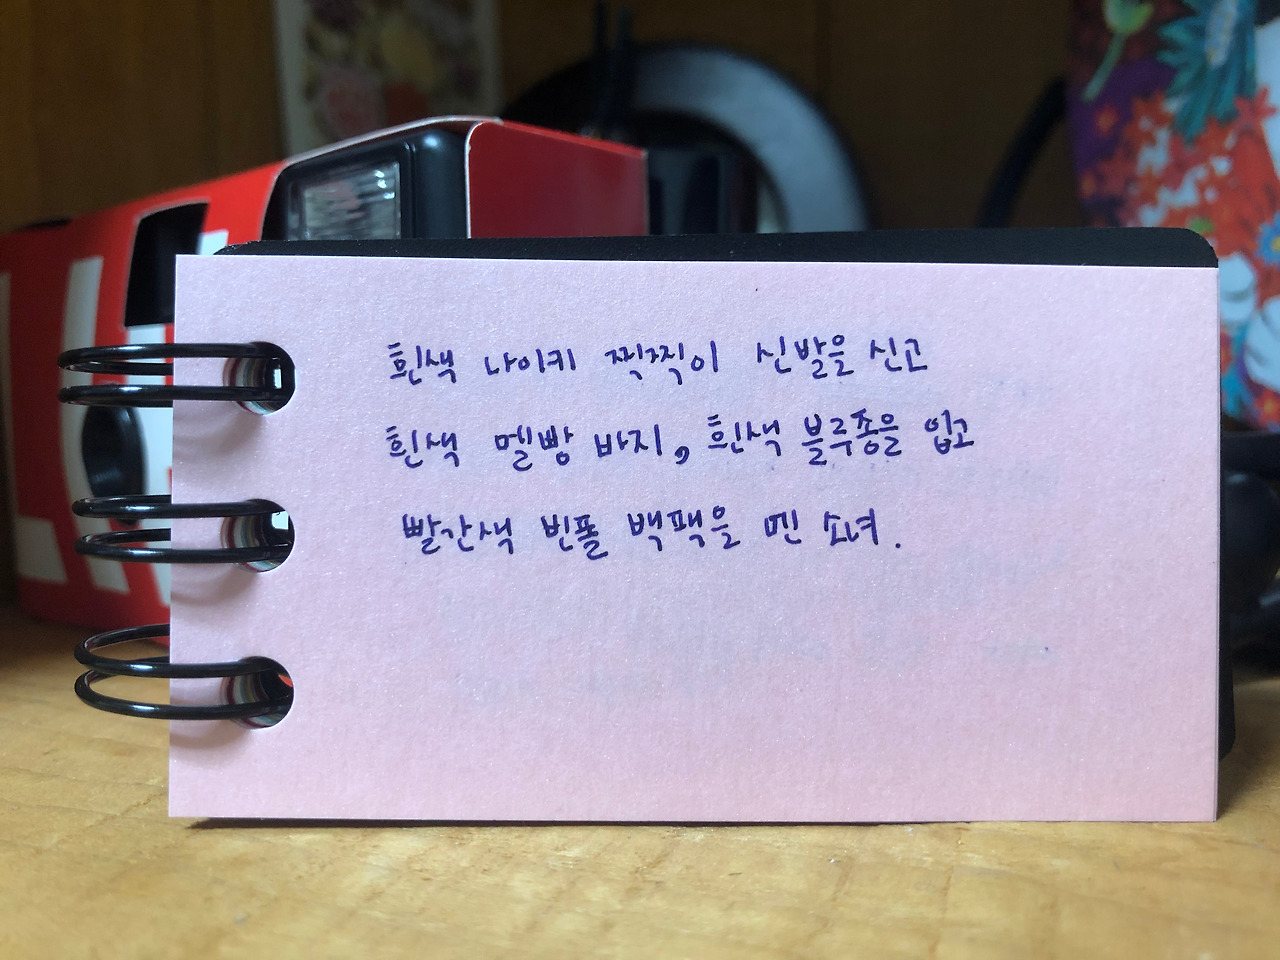 흰색 나이키 찍찍이 신발을 신고
흰색 멜빵 바지, 흰색 블루종을 입고
빨간색 빈폴 백팩을 멘 소녀.